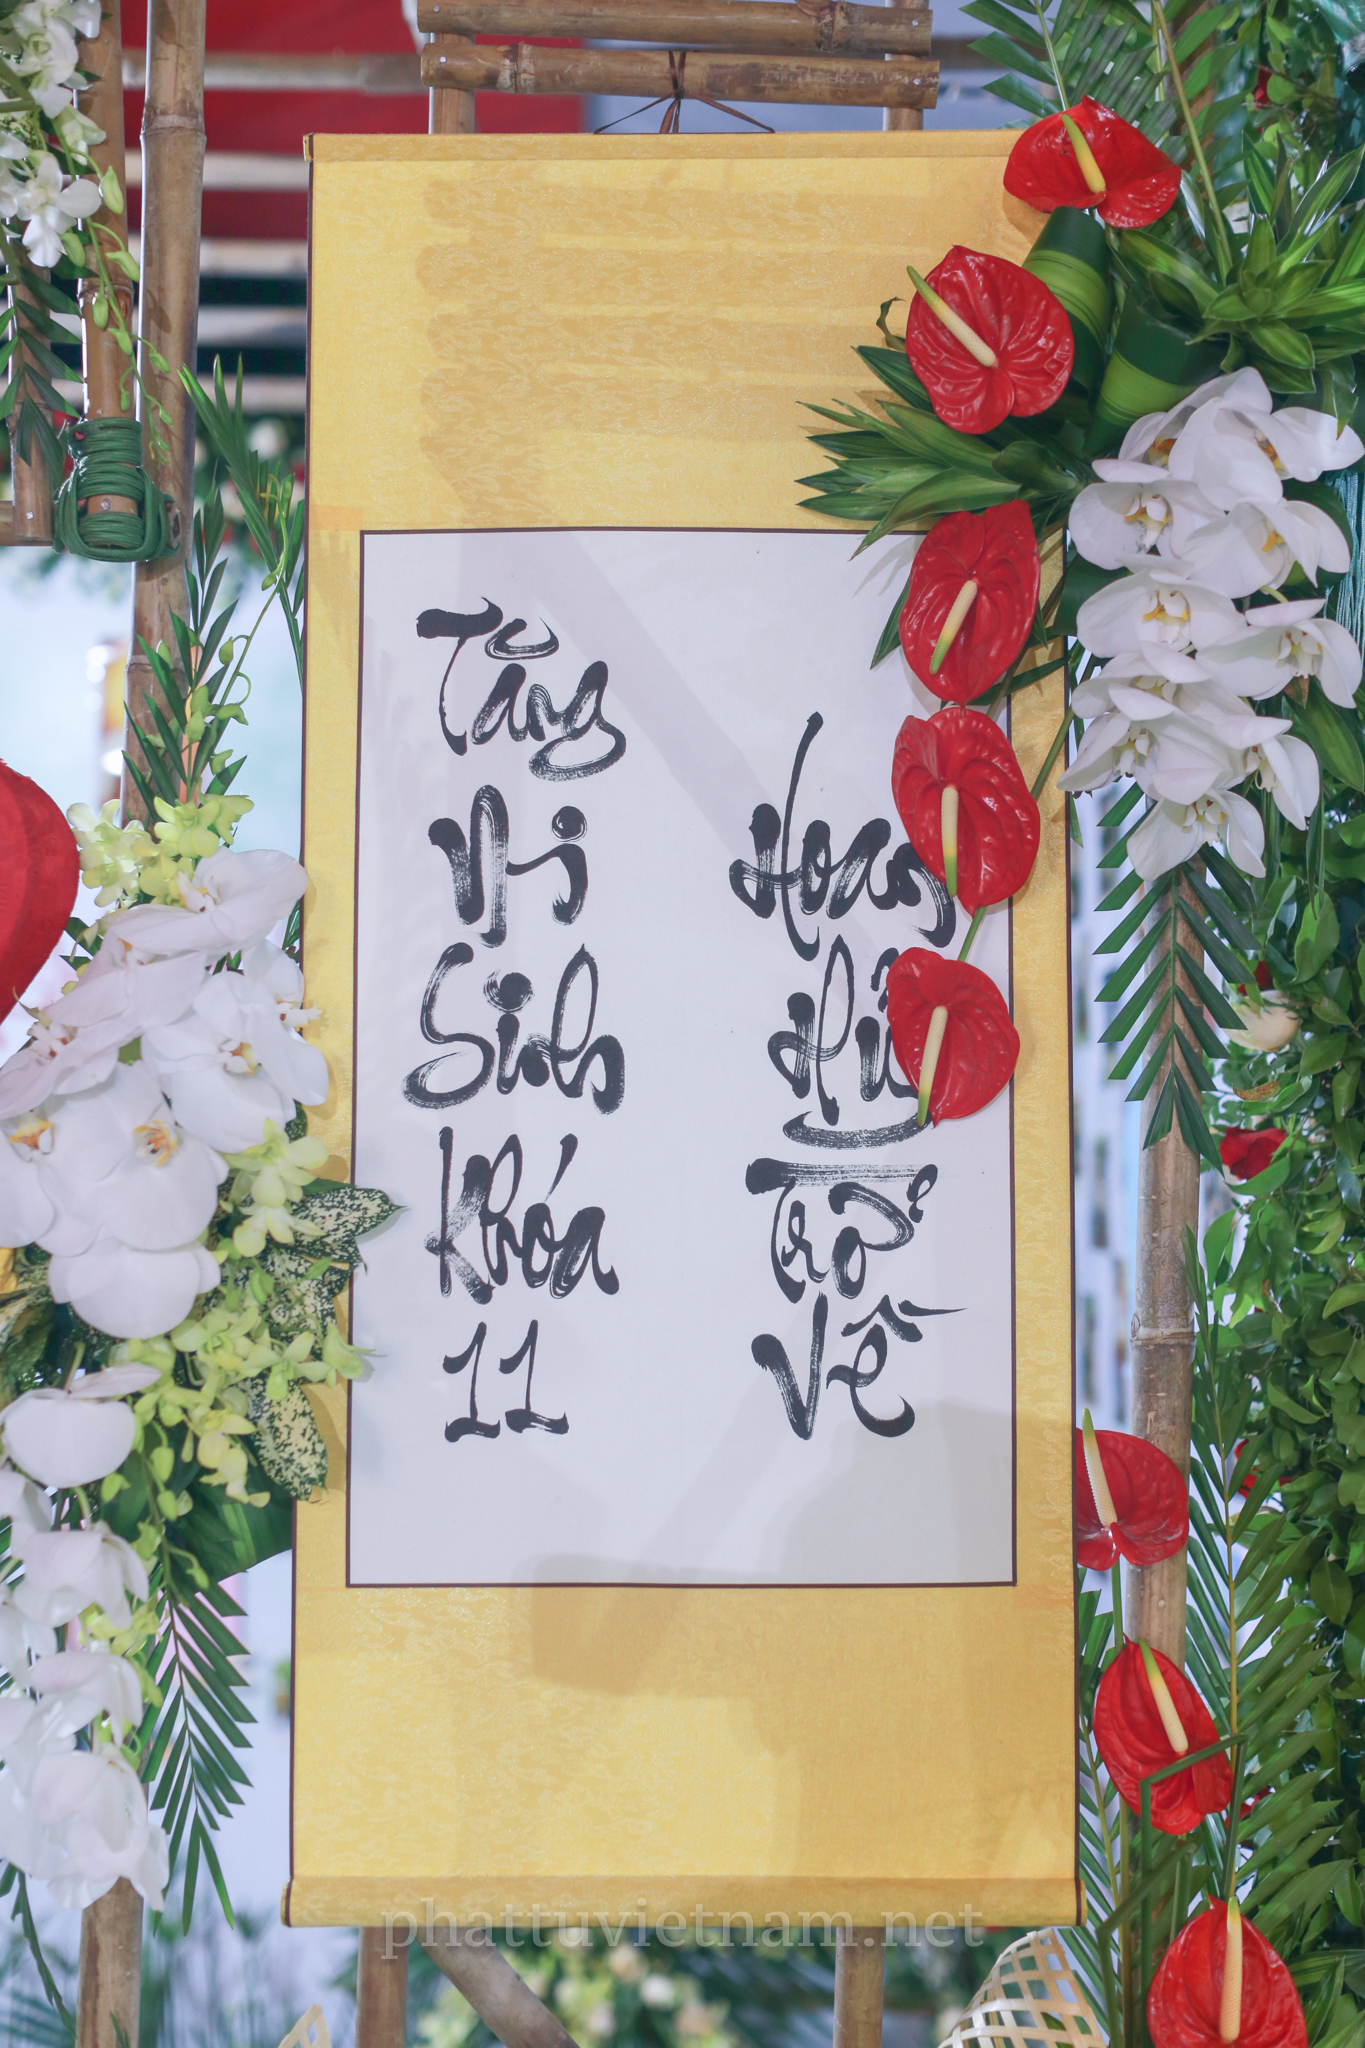 Tăng
Ni
Sinh
Khóa
11
Hoan
Hỷ
Trở
Về
phattuvietnam.net